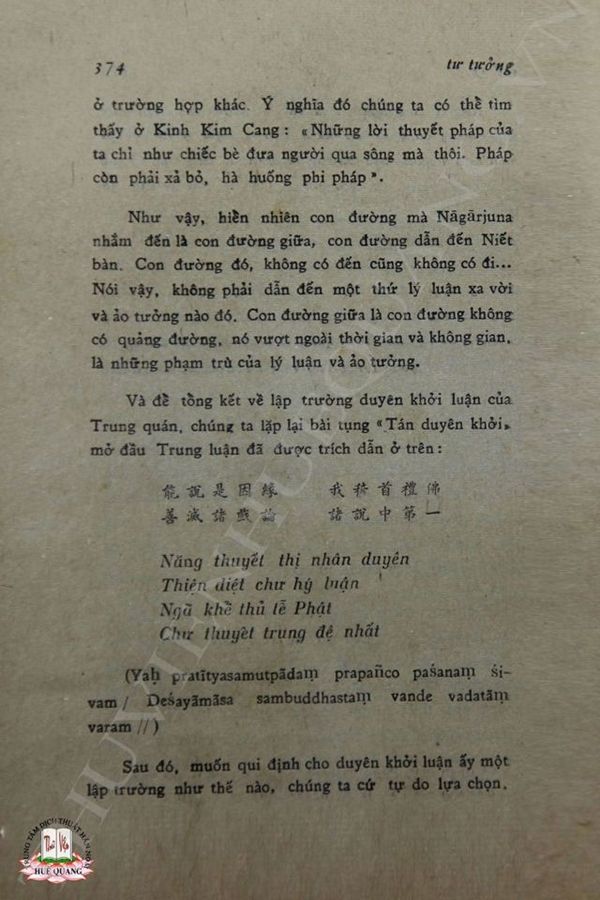 374
tư tưởng
ở trường hợp khác. Ý nghĩa đó chúng ta có thể tìm
thấy ở Kinh Kim Cang : «Những lời thuyết pháp của
ta chỉ như chiếc bè đưa người qua sông mà thôi. Pháp
còn phải xả bỏ, hà huống phi pháp».
Như vậy, hiển nhiên con đường mà Nāgārjuna
nhắm đến là con đường giữa, con đường dẫn đến Niết
bàn. Con đường đó, không có đến cũng không có đi...
Nói vậy, không phải dẫn đến một thứ lý luận xa vời
và ảo tưởng nào đó. Con đường giữa là con đường không
có quảng đường, nó vượt ngoài thời gian và không gian,
là những phạm trù của lý luận và ảo tưởng.
Và để tổng kết về lập trường duyên khởi luận của
Trung quán, chúng ta lặp lại bài tụng «Tán duyên khởi»
mở đầu Trung luận đã được trích dẫn ở trên :
能說是因緣 我稽首禮佛
善滅諸戲論 諸說中第一
Năng thuyết thị nhân duyên
Thiện diệt chư hý luận
Ngã khể thủ lễ Phật
Chư thuyết trung đệ nhất
(Yaḥ pratītyasamutpādaṃ prapañco paśanaṃ śi-
vam / Deśayāmāsa sambuddhastaṃ vande vadatāṃ
varam //)
Sau đó, muốn qui định cho duyên khởi luận ấy một
lập trường như thế nào, chúng ta cứ tự do lựa chọn.
TRUNG TÂM DỊCH THUẬT HÁN NÔM
HUỆ QUANG